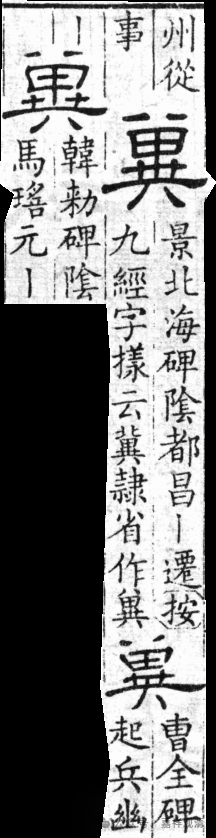 州從
事
兾
景北海碑陰都昌丨遷按
九經字樣云冀隸省作兾
兾
曹全碑
起兵幽
丨
兾
韓勑碑陰
馬瑤元丨